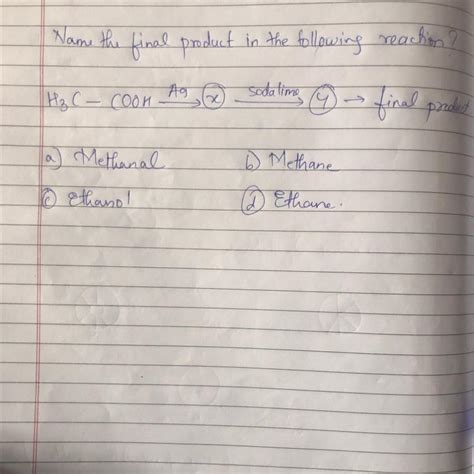 Name the final product in the following reaction?
H3C - COOH Ag → (x) sodalime → (y) → final product
a) Methanal b) Methane
(c) Ethanol (d) Ethane.